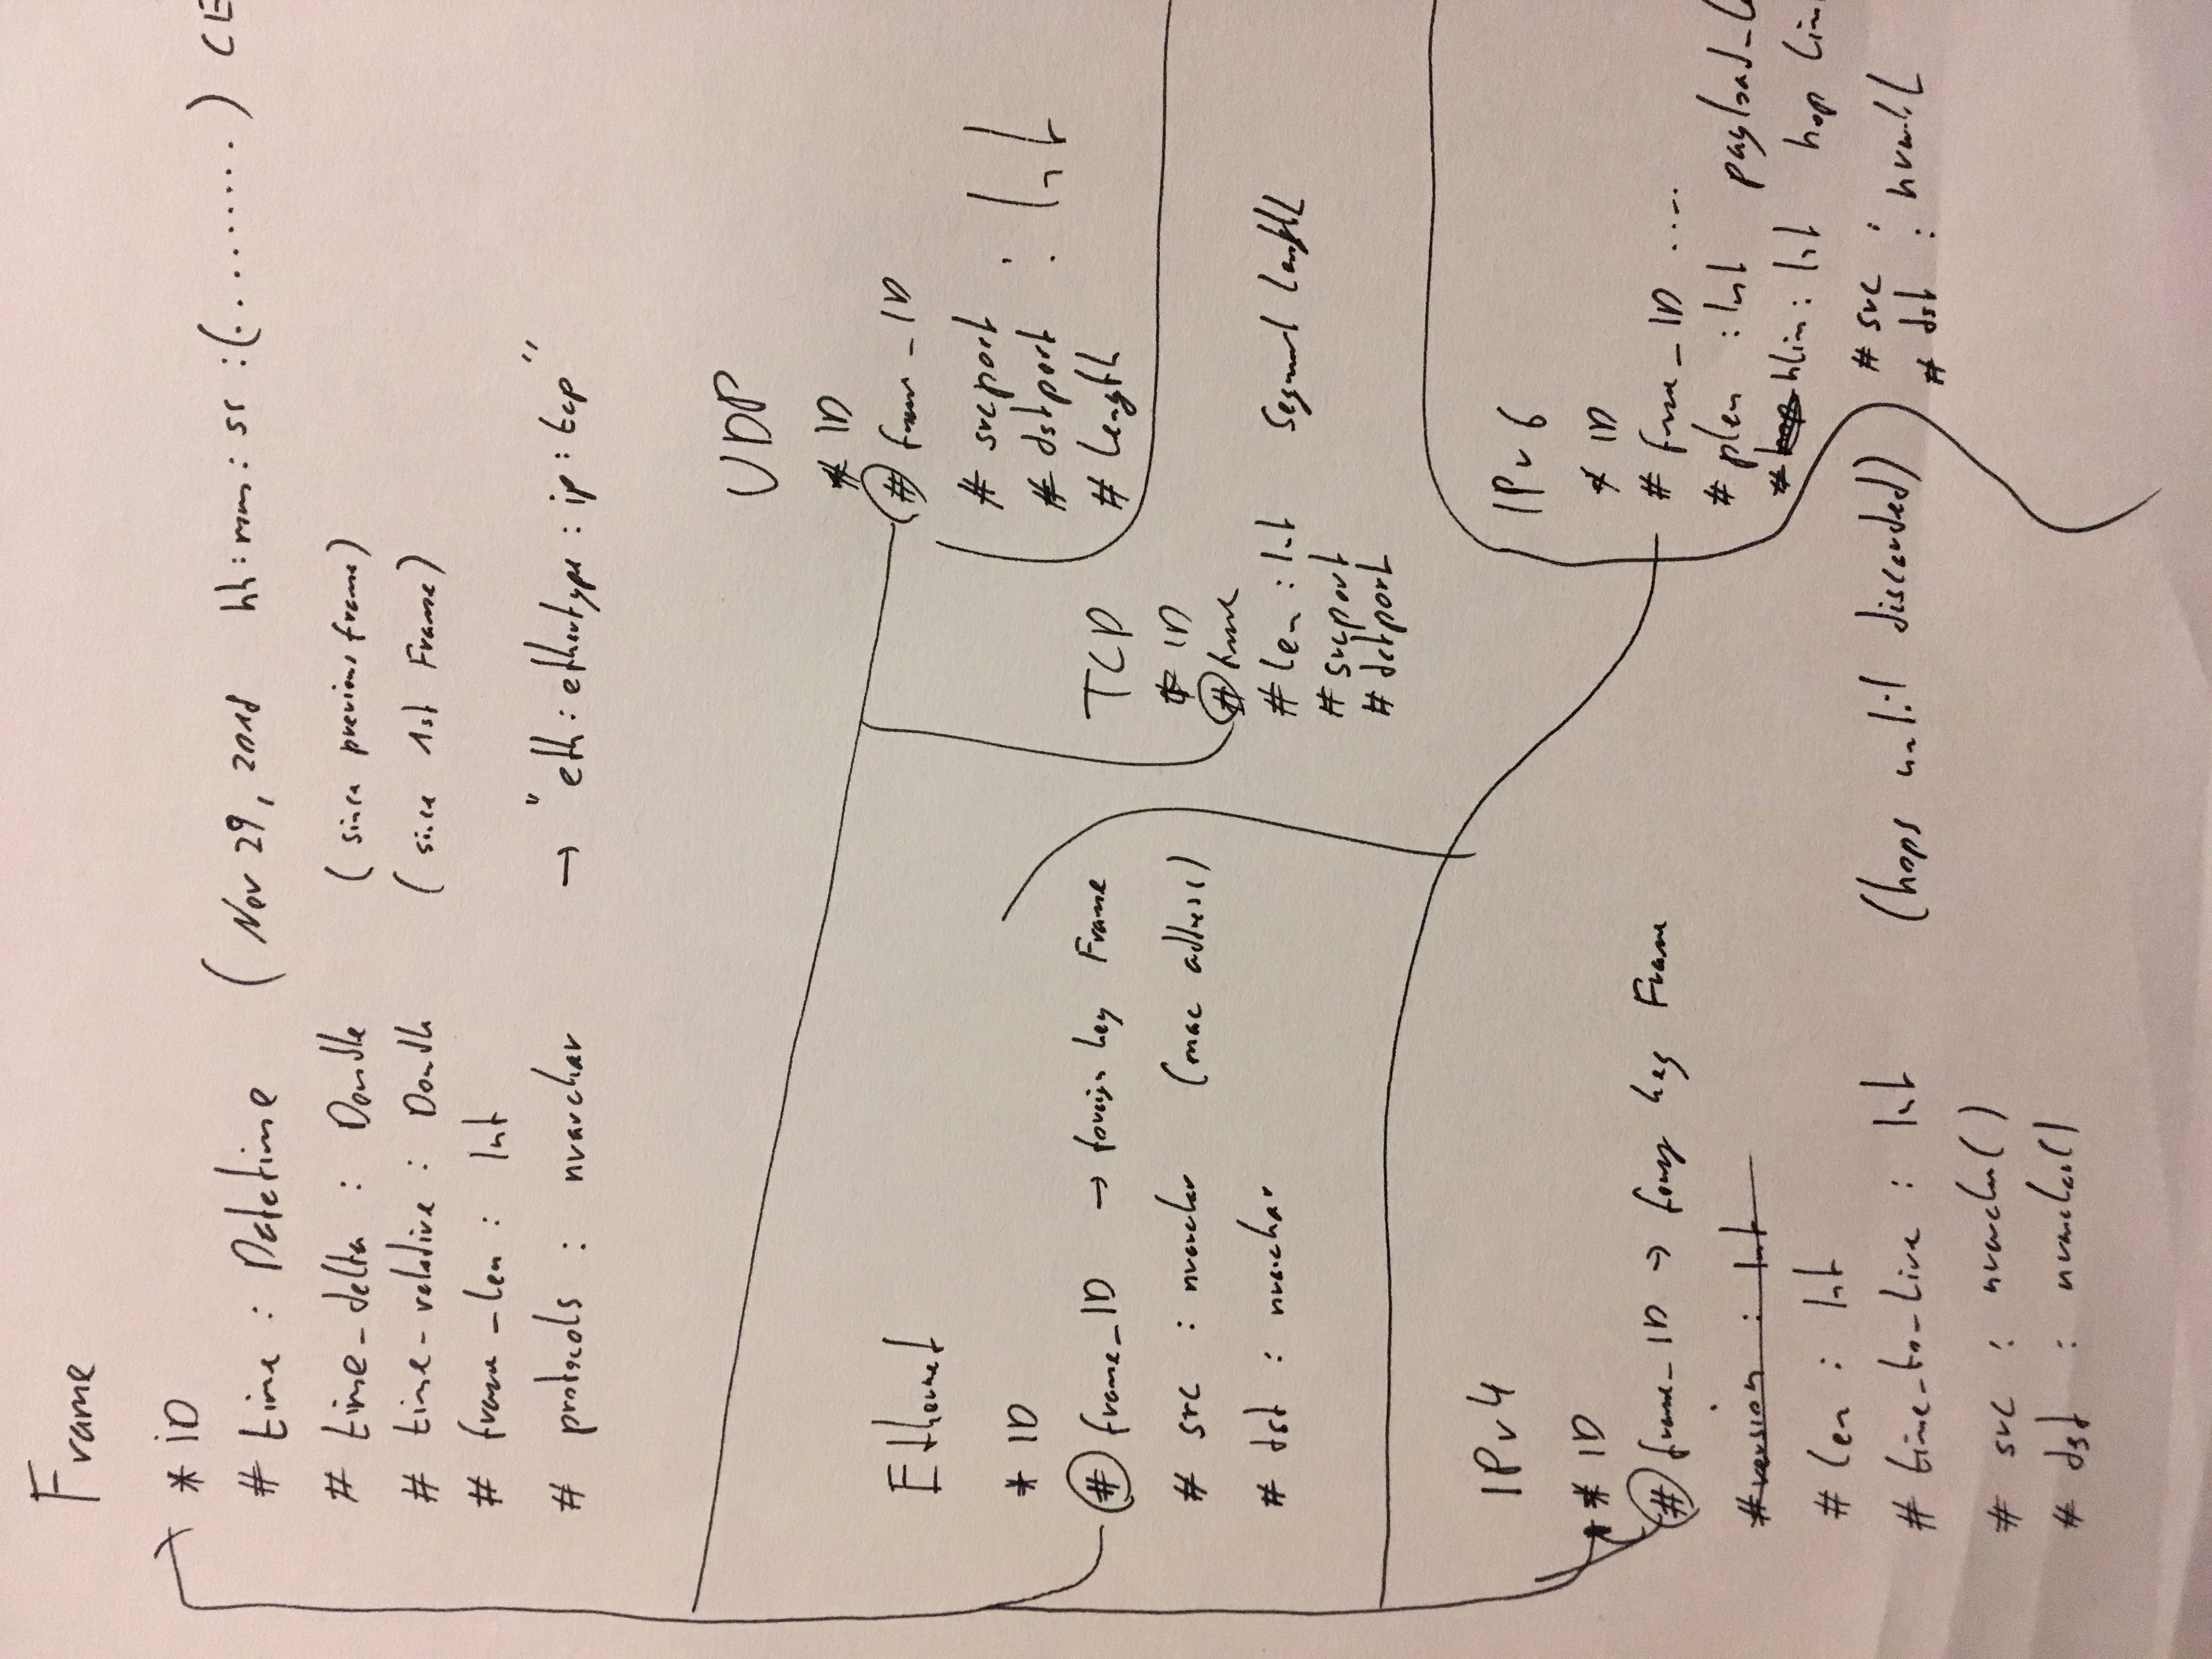 Frame
* ID
# time : Datetime ( Nov 29, 2018 hh:mm:ss :(.........) CE
# time_delta : Double (since previous frame)
# time-relative : Double (since 1st Frame)
# frame_len : Int
# protocols : nvarchar → "eth:ethertype:ip:tcp"
UDP
* ID
# frame_ID
# srcport
# dstport : Int
# length
Ethernet
* ID
# frame_ID → foreign key Frame
# src : nvarchar (mac address)
# dst : nvarchar
TCP
* ID
# frame
# len : Int Segment length
# srcport
# dstport
IPv4
* ID
# frame_ID → foreign key Frame
# version : Int
# len : Int
# time_to_live : Int (hops until discarded)
# src : nvarchar()
# dst : nvarchar()
IPv6
* ID
# frame_ID ....
# plen : Int payload_le
# hop hlim : Int hop lim
# src :
# dst :